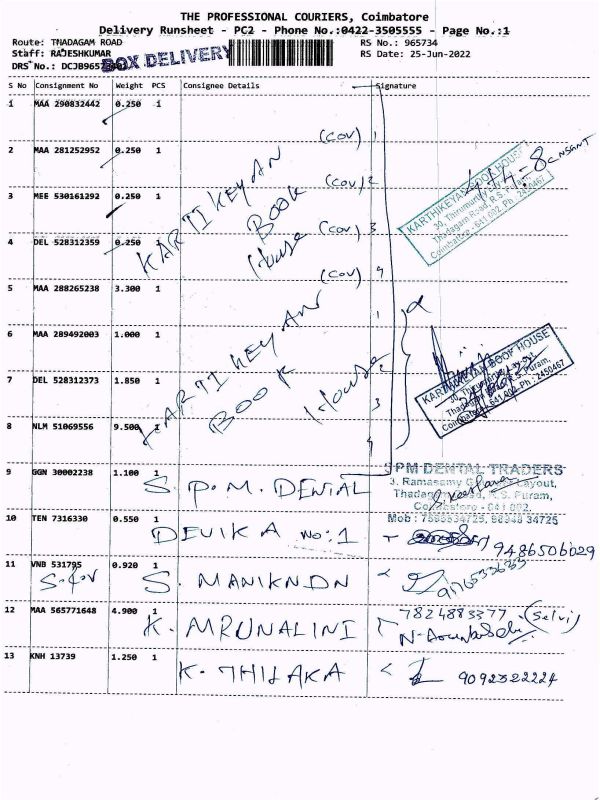 THE PROFESSIONAL COURIERS, Coimbatore
Delivery Runsheet - PC2 - Phone No.:0422-3505555 - Page No.:1
Route: THADAGAM ROAD
RS No.: 965734
Staff: RAJESHKUMAR
RS Date: 25-Jun-2022
DRS No.: DCJB965
BOX DELIVERY
S No Consignment No Weight PCS Consignee Details Signature
1 MAA 290832442 0.250 1
(COV) 1
2 MAA 281252952 0.250 1
(COV) 2
3 MEE 530161292 0.250 1
(COV) 3
4 DEL 528312359 0.250 1
(COV) 4
KARTIKEYAN
BOOK
House
KARTHIKEYAN BOOK HOUSE
30, Thirumurthy Layout,
Thadagam Road, R.S. Puram,
Coimbatore - 641 002. Ph : 2450467
5 MAA 288265238 3.300 1
1
6 MAA 289492003 1.000 1
2
7 DEL 528312373 1.850 1
3
8 NLM 51069556 9.500 1
4
KARTIKEYAN
BOOK
House
KARTHIKEYAN BOOK HOUSE
30, Thirumurthy Layout,
Thadagam Road, R.S. Puram,
Coimbatore - 641 002. Ph : 2450467
9 GGN 30002238 1.100 1
S. P. M. DENTAL
SPM DENTAL TRADERS
3, Ramasamy Layout,
R.S. Puram,
Coimbatore - 641 002.
Mob :
34725
10 TEN 7316330 0.550 1
DEVIKA NO:1
9486506029
11 VNB 531795 0.920 1
S. MANIKNDN
12 MAA 565771648 4.900 1
K. MRUNALINI
7824883377 (Selvi)
13 KNH 13739 1.250 1
K. THILAKA
9092522224